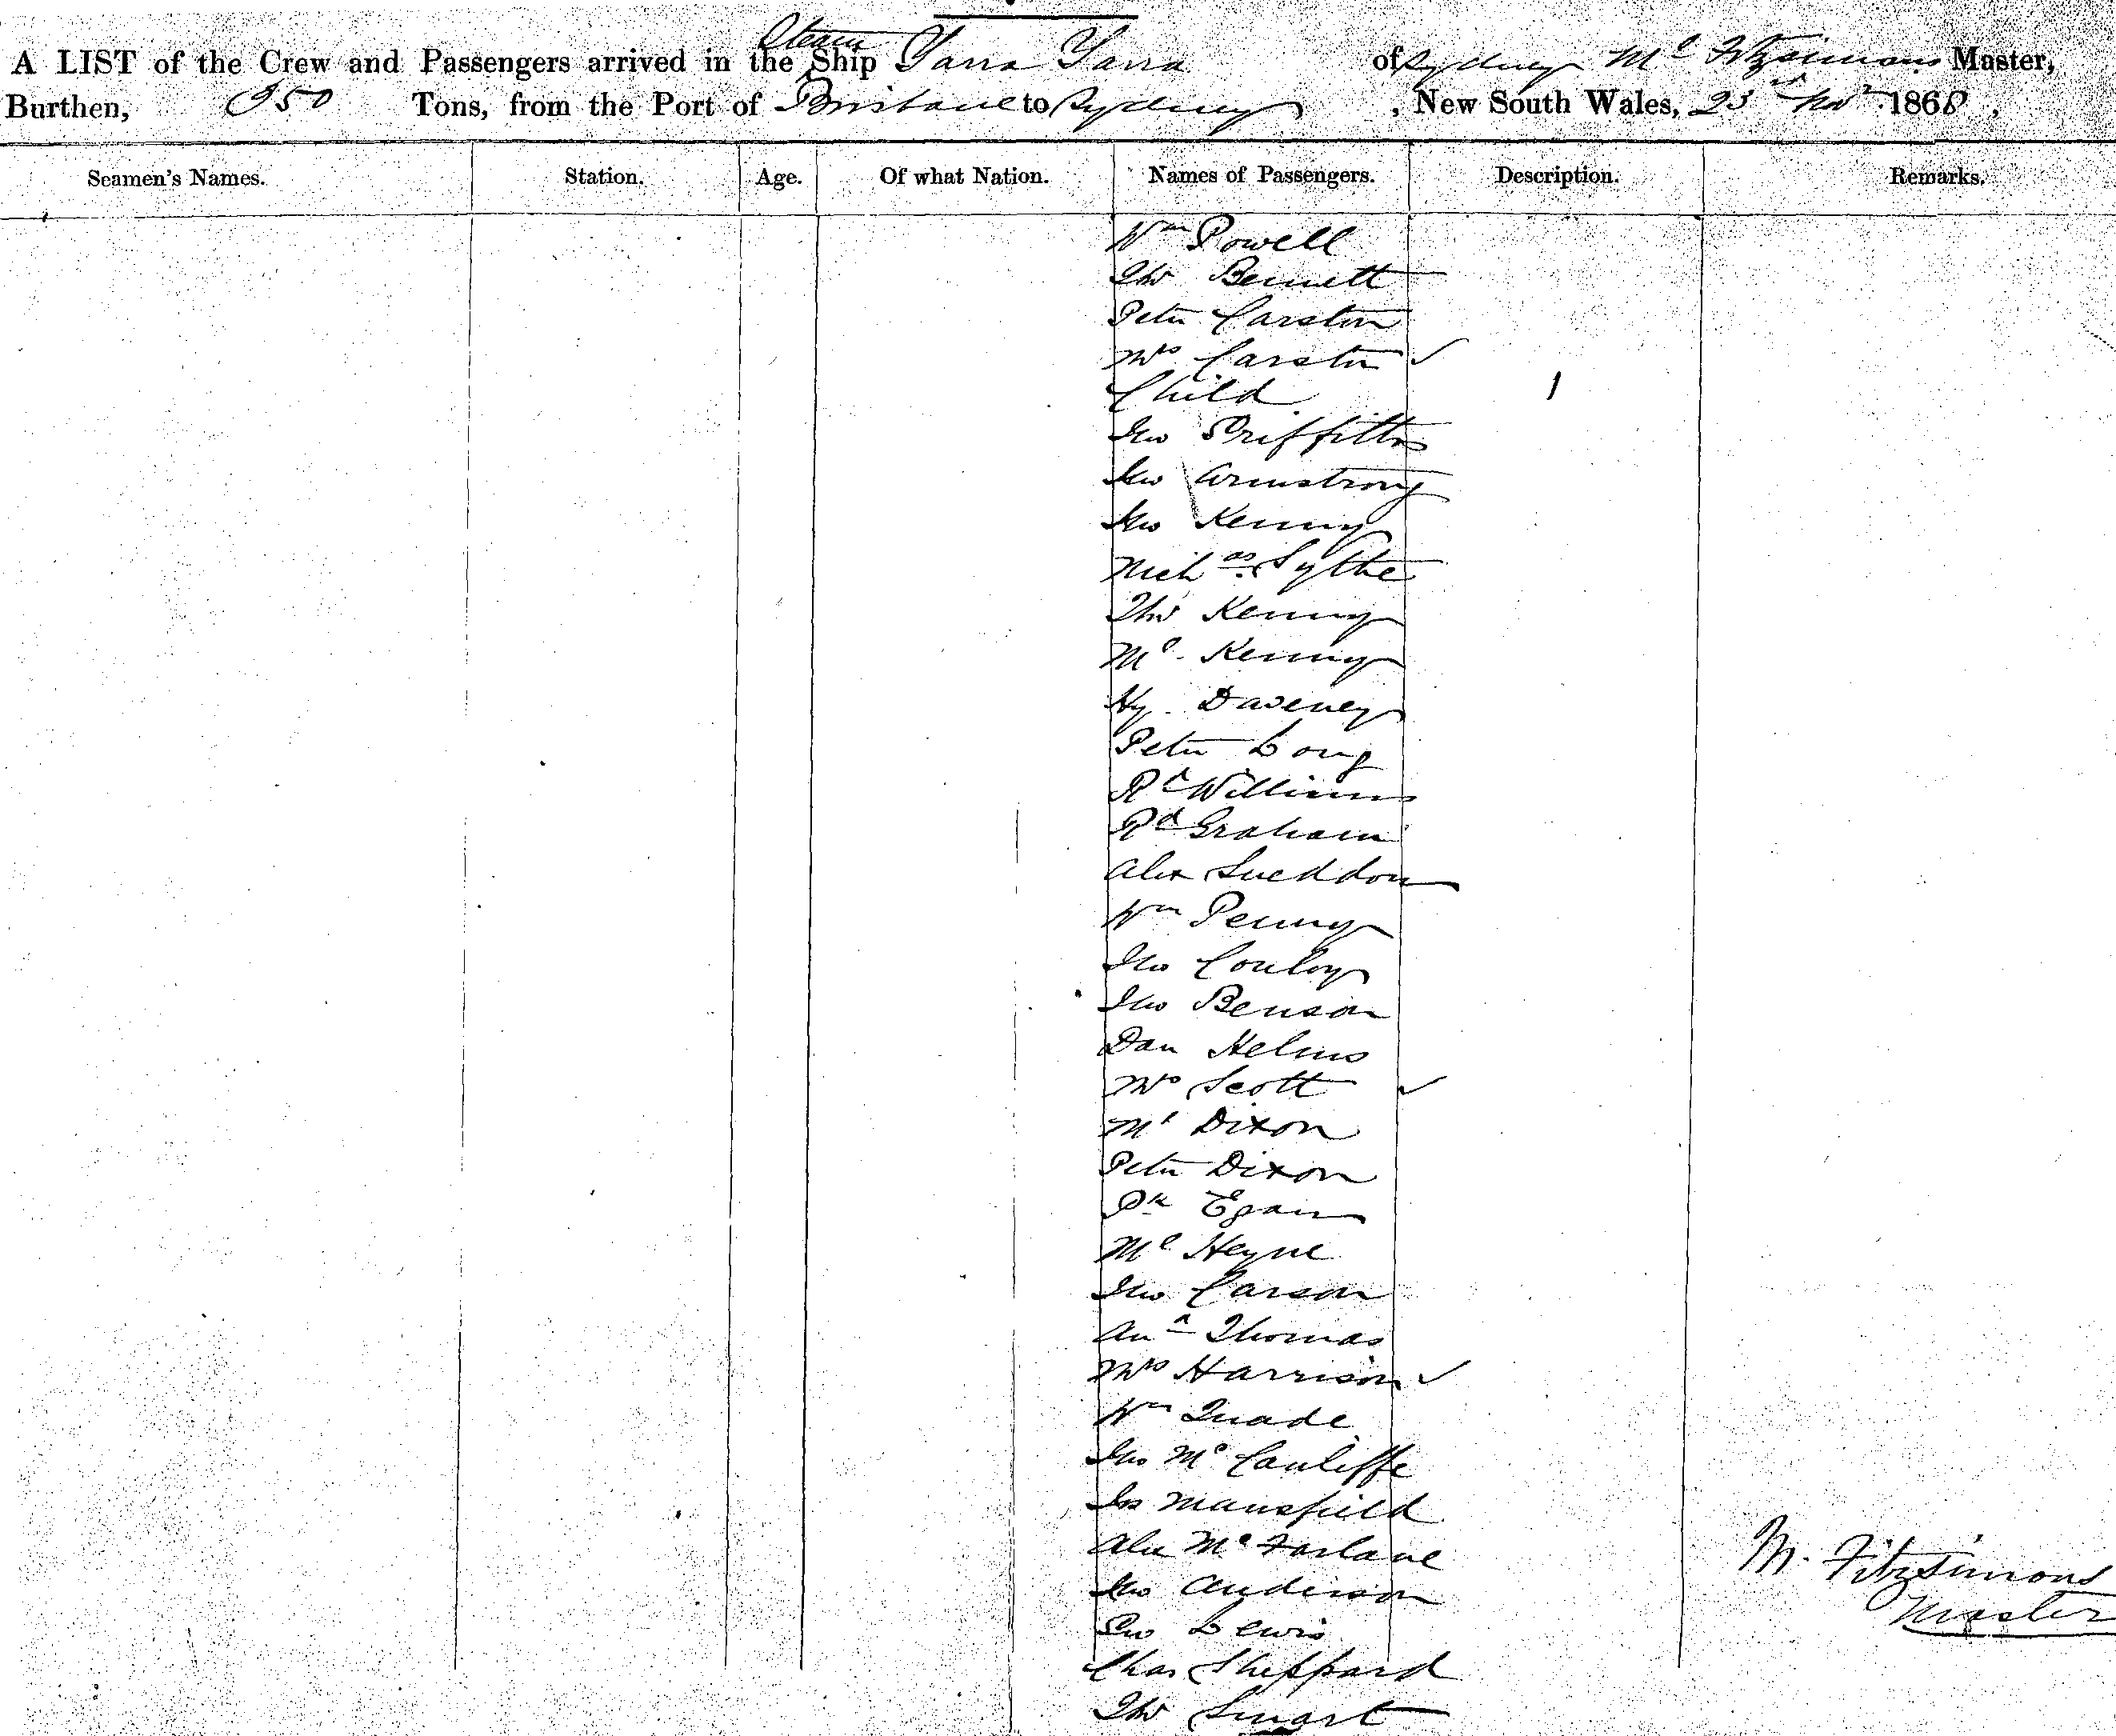 A LIST of the Crew and Passengers arrived in the Steam Ship Yarra Yarra of Sydney Ml Fitzsimons Master,
Burthen, 950 Tons, from the Port of Brisbane to Sydney, New South Wales, 23rd Novr 1868,
Seamen's Names. Station. Age. Of what Nation. Names of Passengers. Description. Remarks.
Wm Powell
Thos Bennett
Peter Carston
Mrs Carston ✓
Child 1
Jno Griffiths
Jno Armstrong
Jno Kenny
Nichas Sythe
Thos Kenny
Ml Kenny
Hy Daveney
Peter Long
Rd Williams
Rd Graham
Alex Sneddon
Wm Penny
Jno Conloy
Jno Benson
Dan Helms
Mrs Scott ✓
Mr Dixon
Peter Dixon
Pk Egan
Ml Heyne
Jno Carson
Thomas
Mrs Harrison ✓
Wm Quade
Jno McCauliffe
Jas Mansfield
Alex McFarlane
Jno Anderson
Geo Lewis
Chas Sheppard
Thos Smart
M. Fitzsimons
Master